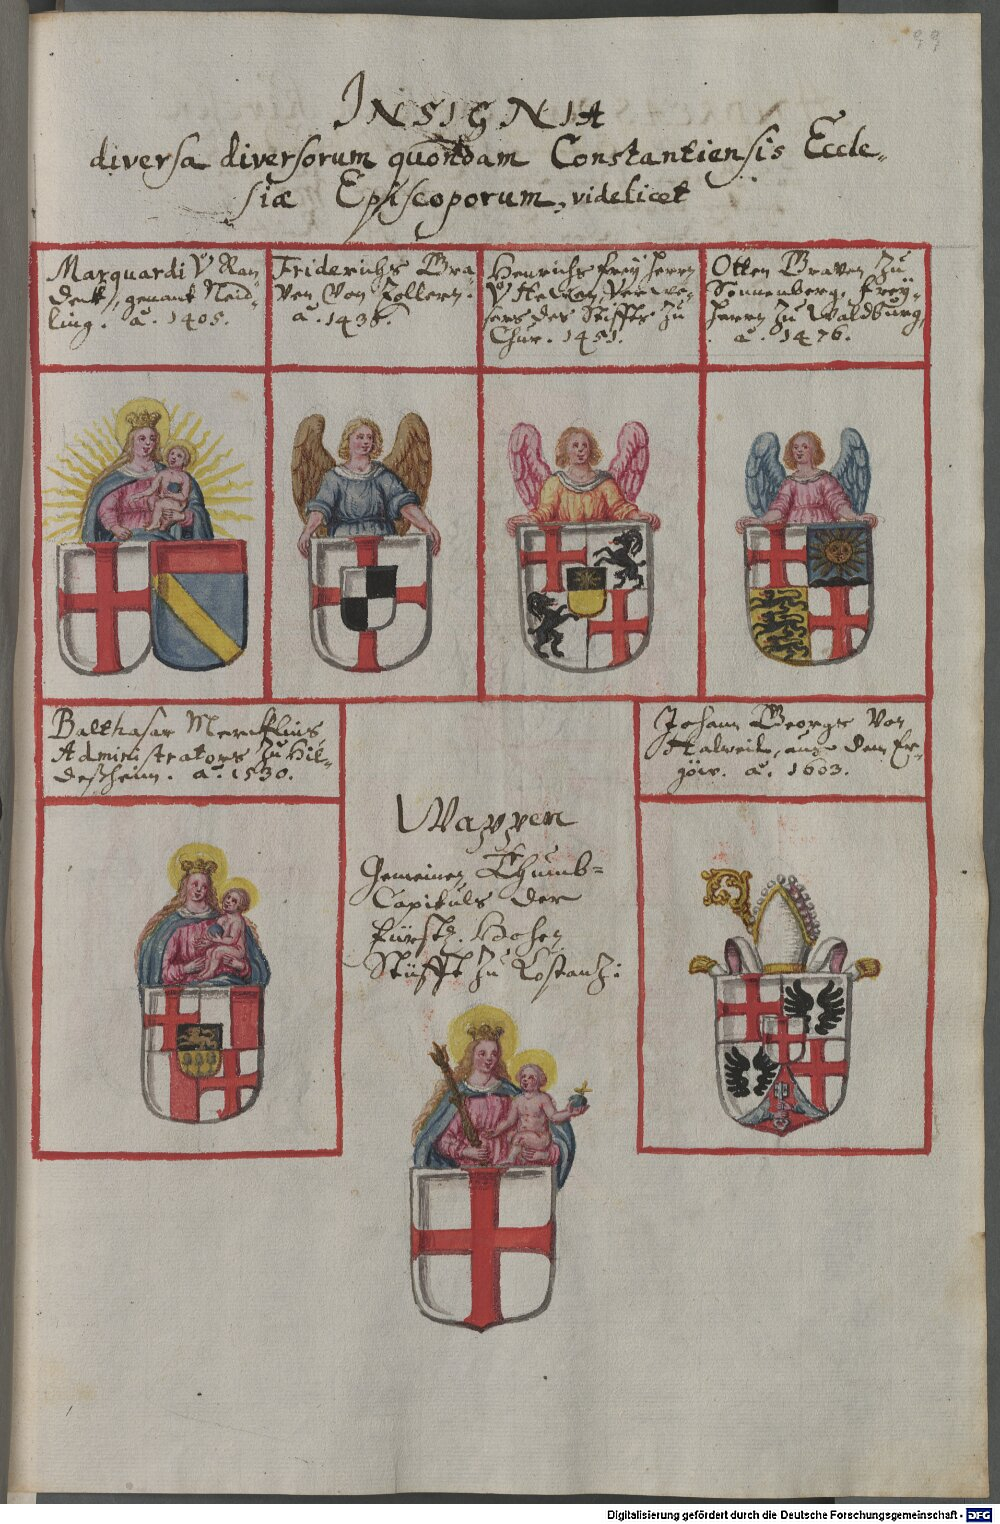 99
INSIGNIA
diversa diversorum quondam Constantiensis Eccle-
siæ Episcoporum, videlicet
Marquardi V Ran
deck, genant Neid-
ling. a. 1405.
Friderichs Gra
ven von Zollern.
a. 1436.
Henrichs Frey Herrn
V Hewen, Verwe-
sers des Stiffts zu
Chur. 1451.
Otten Graven zu
Sonnenberg, Frey-
herrn zu Waldburg,
a. 1476.
Balthasar Mercklins,
Administrators zu Hil-
deßheim. a. 1530.
Johann Georgs von
Halweil, auß dem Er-
göw. a. 1603.
Wappen
Gemeines Thumb-
Capituls der
Fürstl. Hohen
Stüfft zu Costantz:
Digitalisierung gefördert durch die Deutsche Forschungsgemeinschaft - DFG